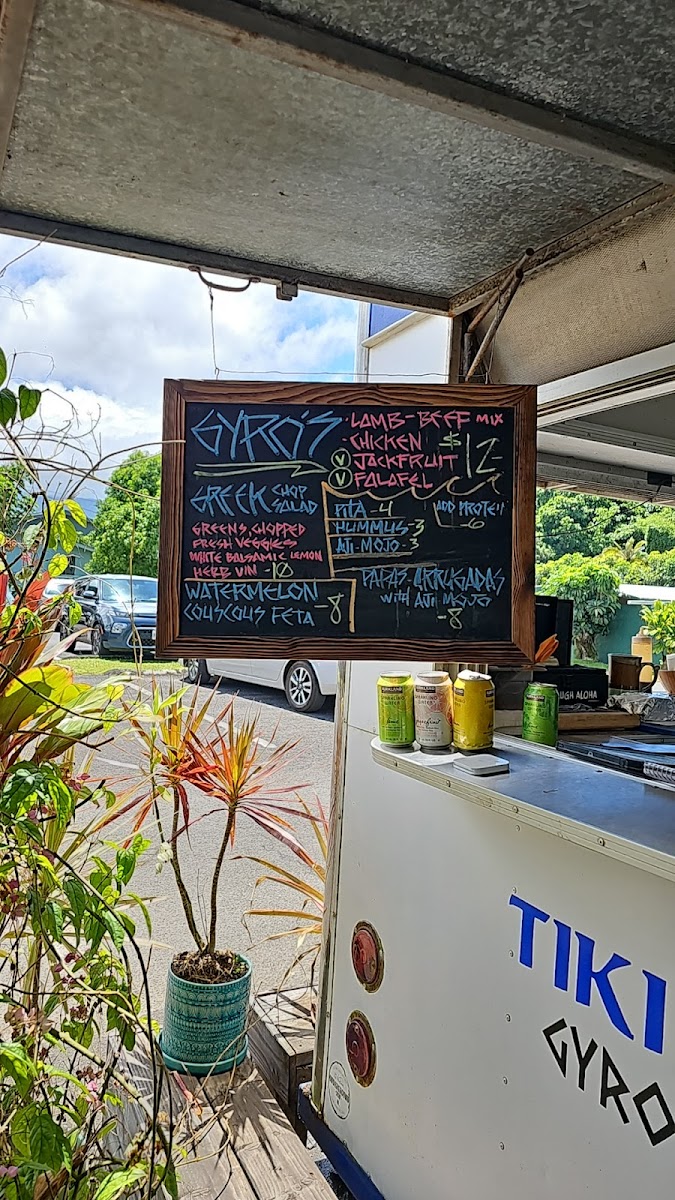 GYRO'S
·LAMB-BEEF MIX
·CHICKEN
Ⓥ JACKFRUIT
Ⓥ FALAFEL
$12-
GREEK CHOP SALAD
GREENS CHOPPED
FRESH VEGGIES
WHITE BALSAMIC LEMON
HERB VIN -10
WATERMELON
COUSCOUS FETA -8
PITA -4
HUMMUS -3
AJI-MOJO -3
ADD PROTEIN
-6
PAPAS ARRUGADAS
WITH AJI MOJO
-8
KIRKLAND
SPARKLING WATER
ALOHA
TIKI
GYRO